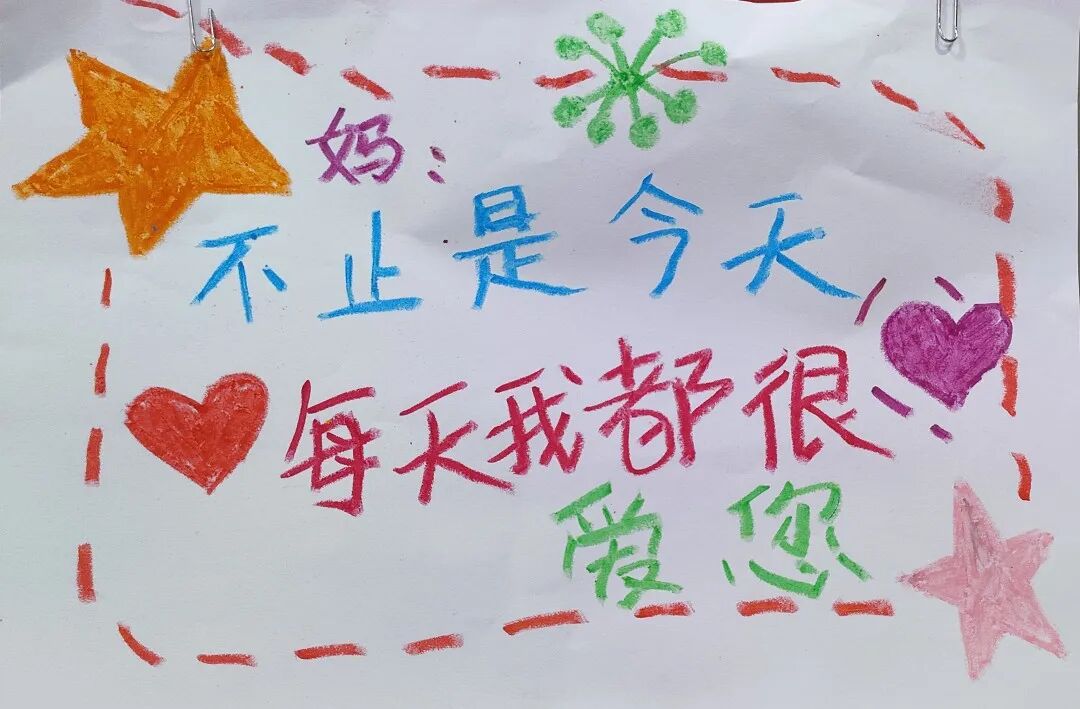 妈:
不止是今天
每天我都很
爱您